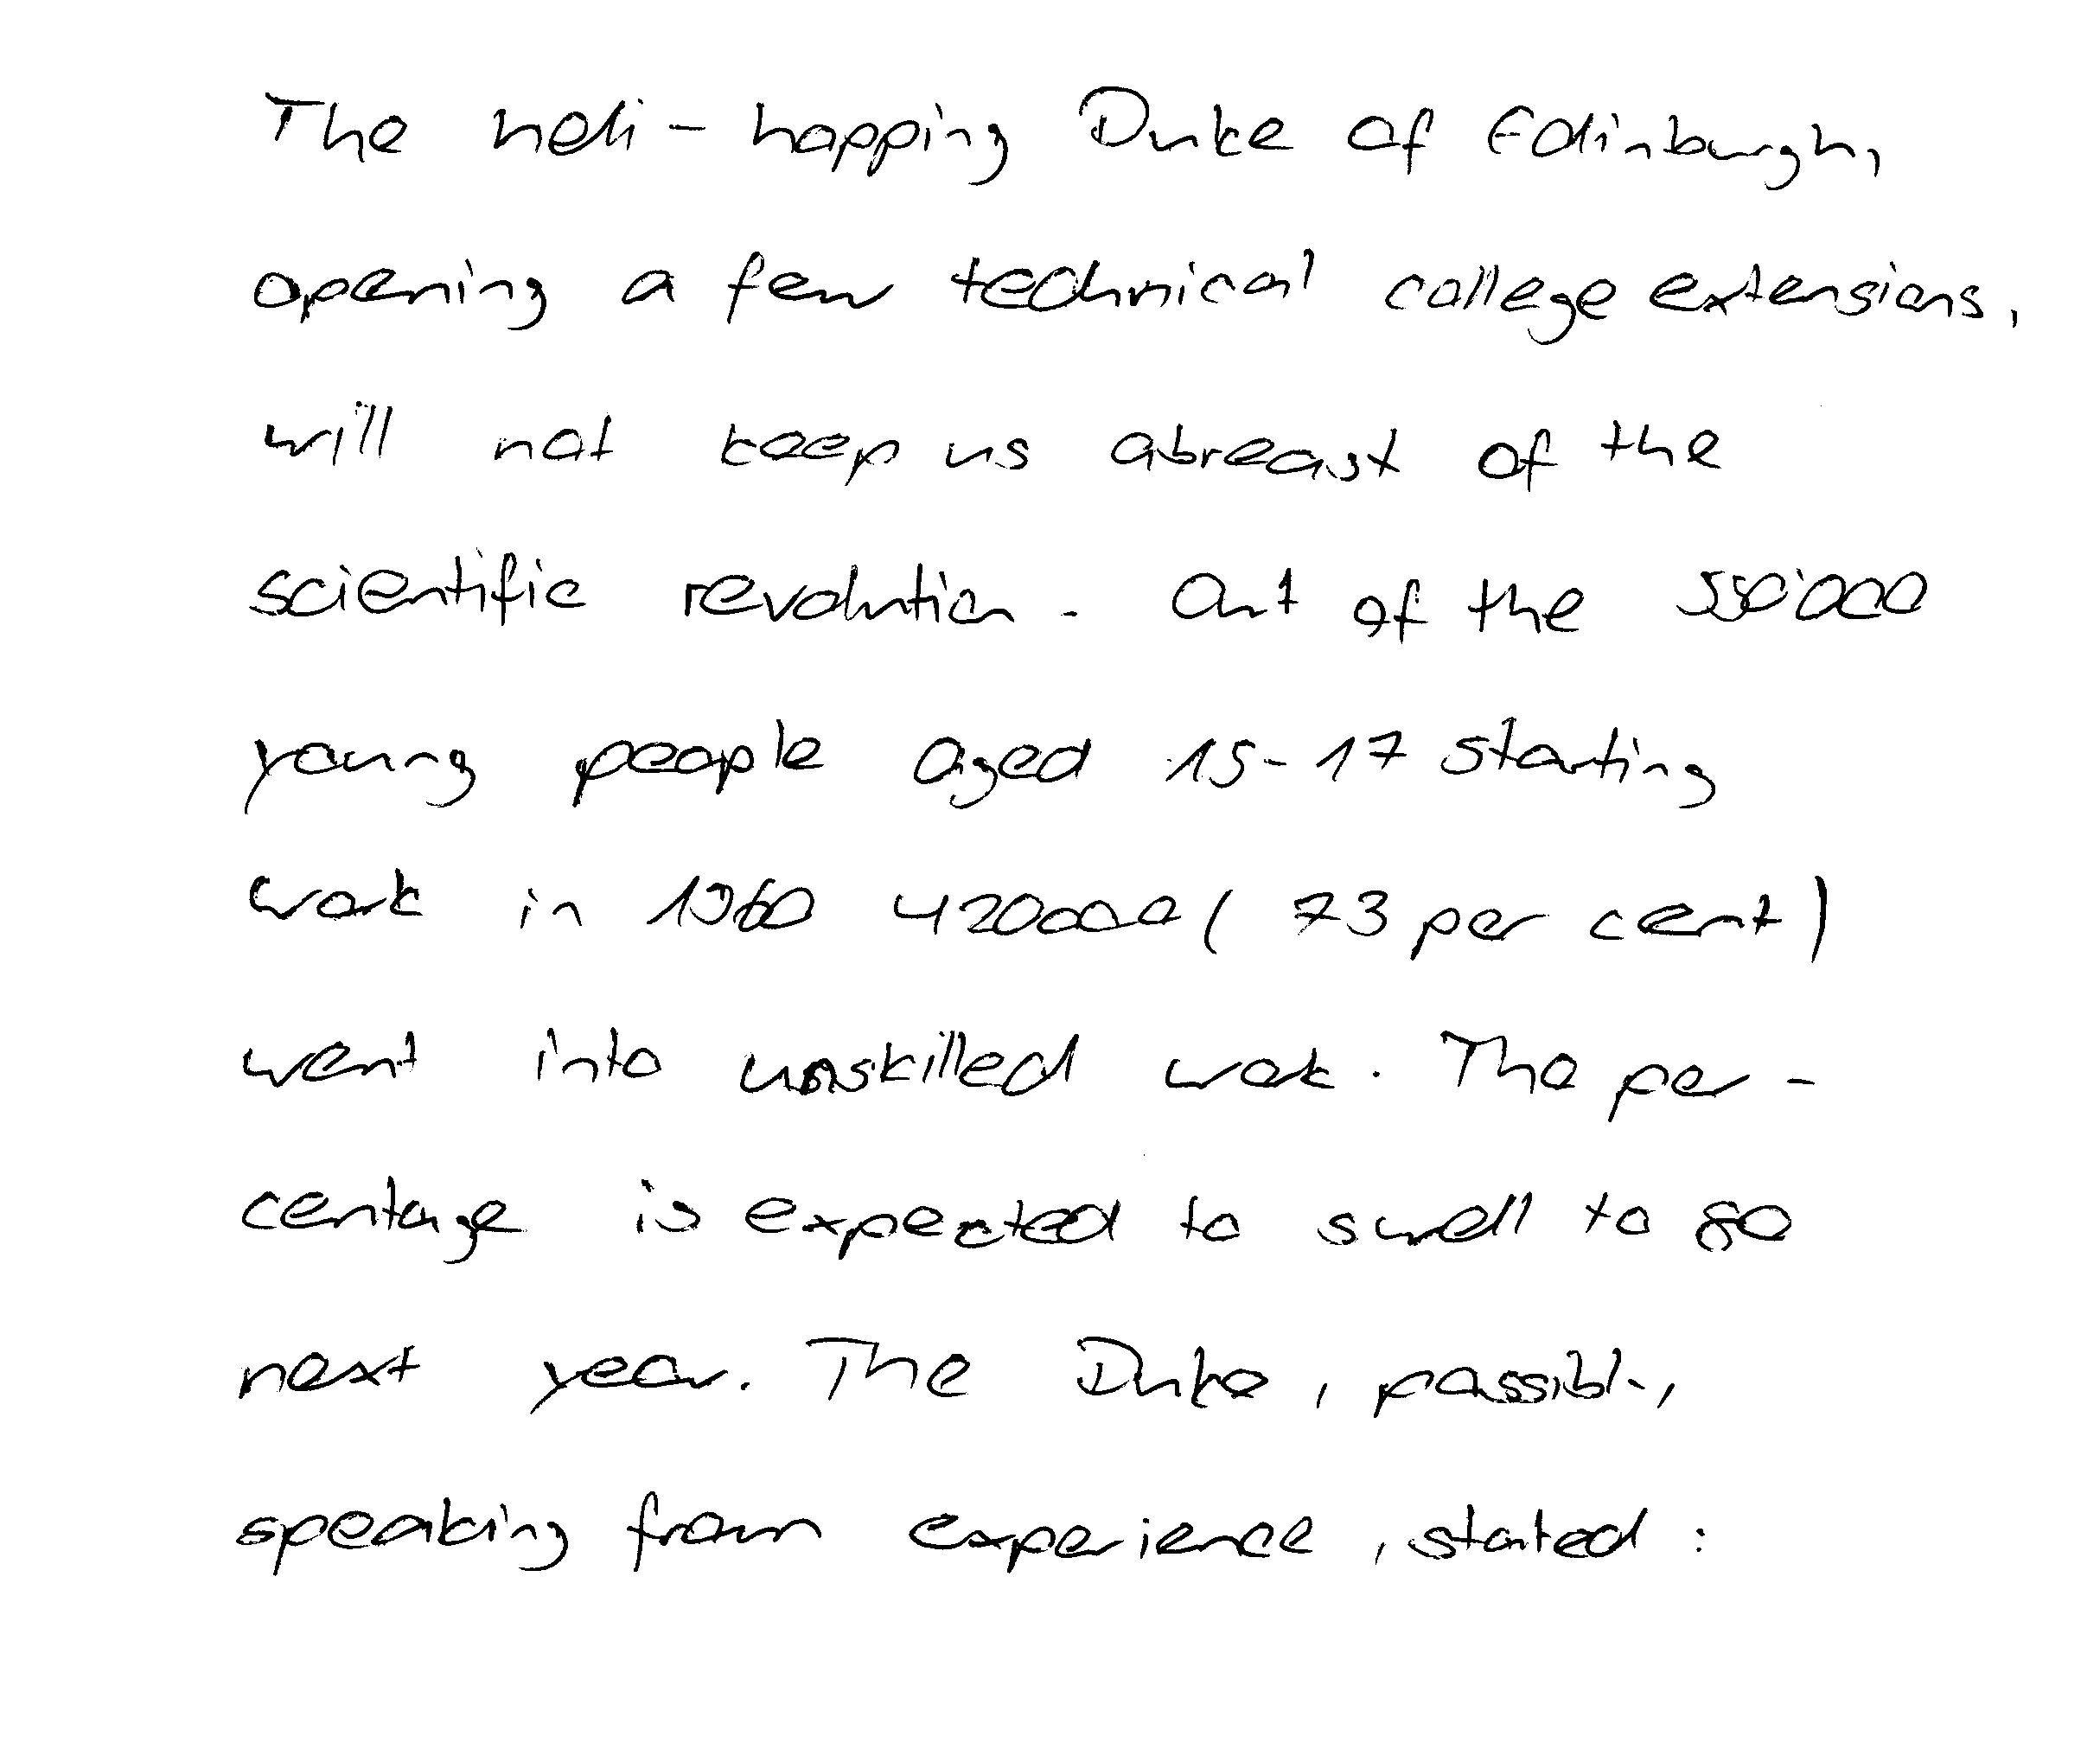 The heli-hopping Duke of Edinburgh,
opening a few technical college extensions,
will not keep us abreast of the
scientific revolution. Out of the 550'000
young people aged 15-17 starting
work in 1960 420000 ( 73 per cent)
went into unskilled work. The per-
centage is expected to swell to 80
next year. The Duke, possibly,
speaking from experience, stated: